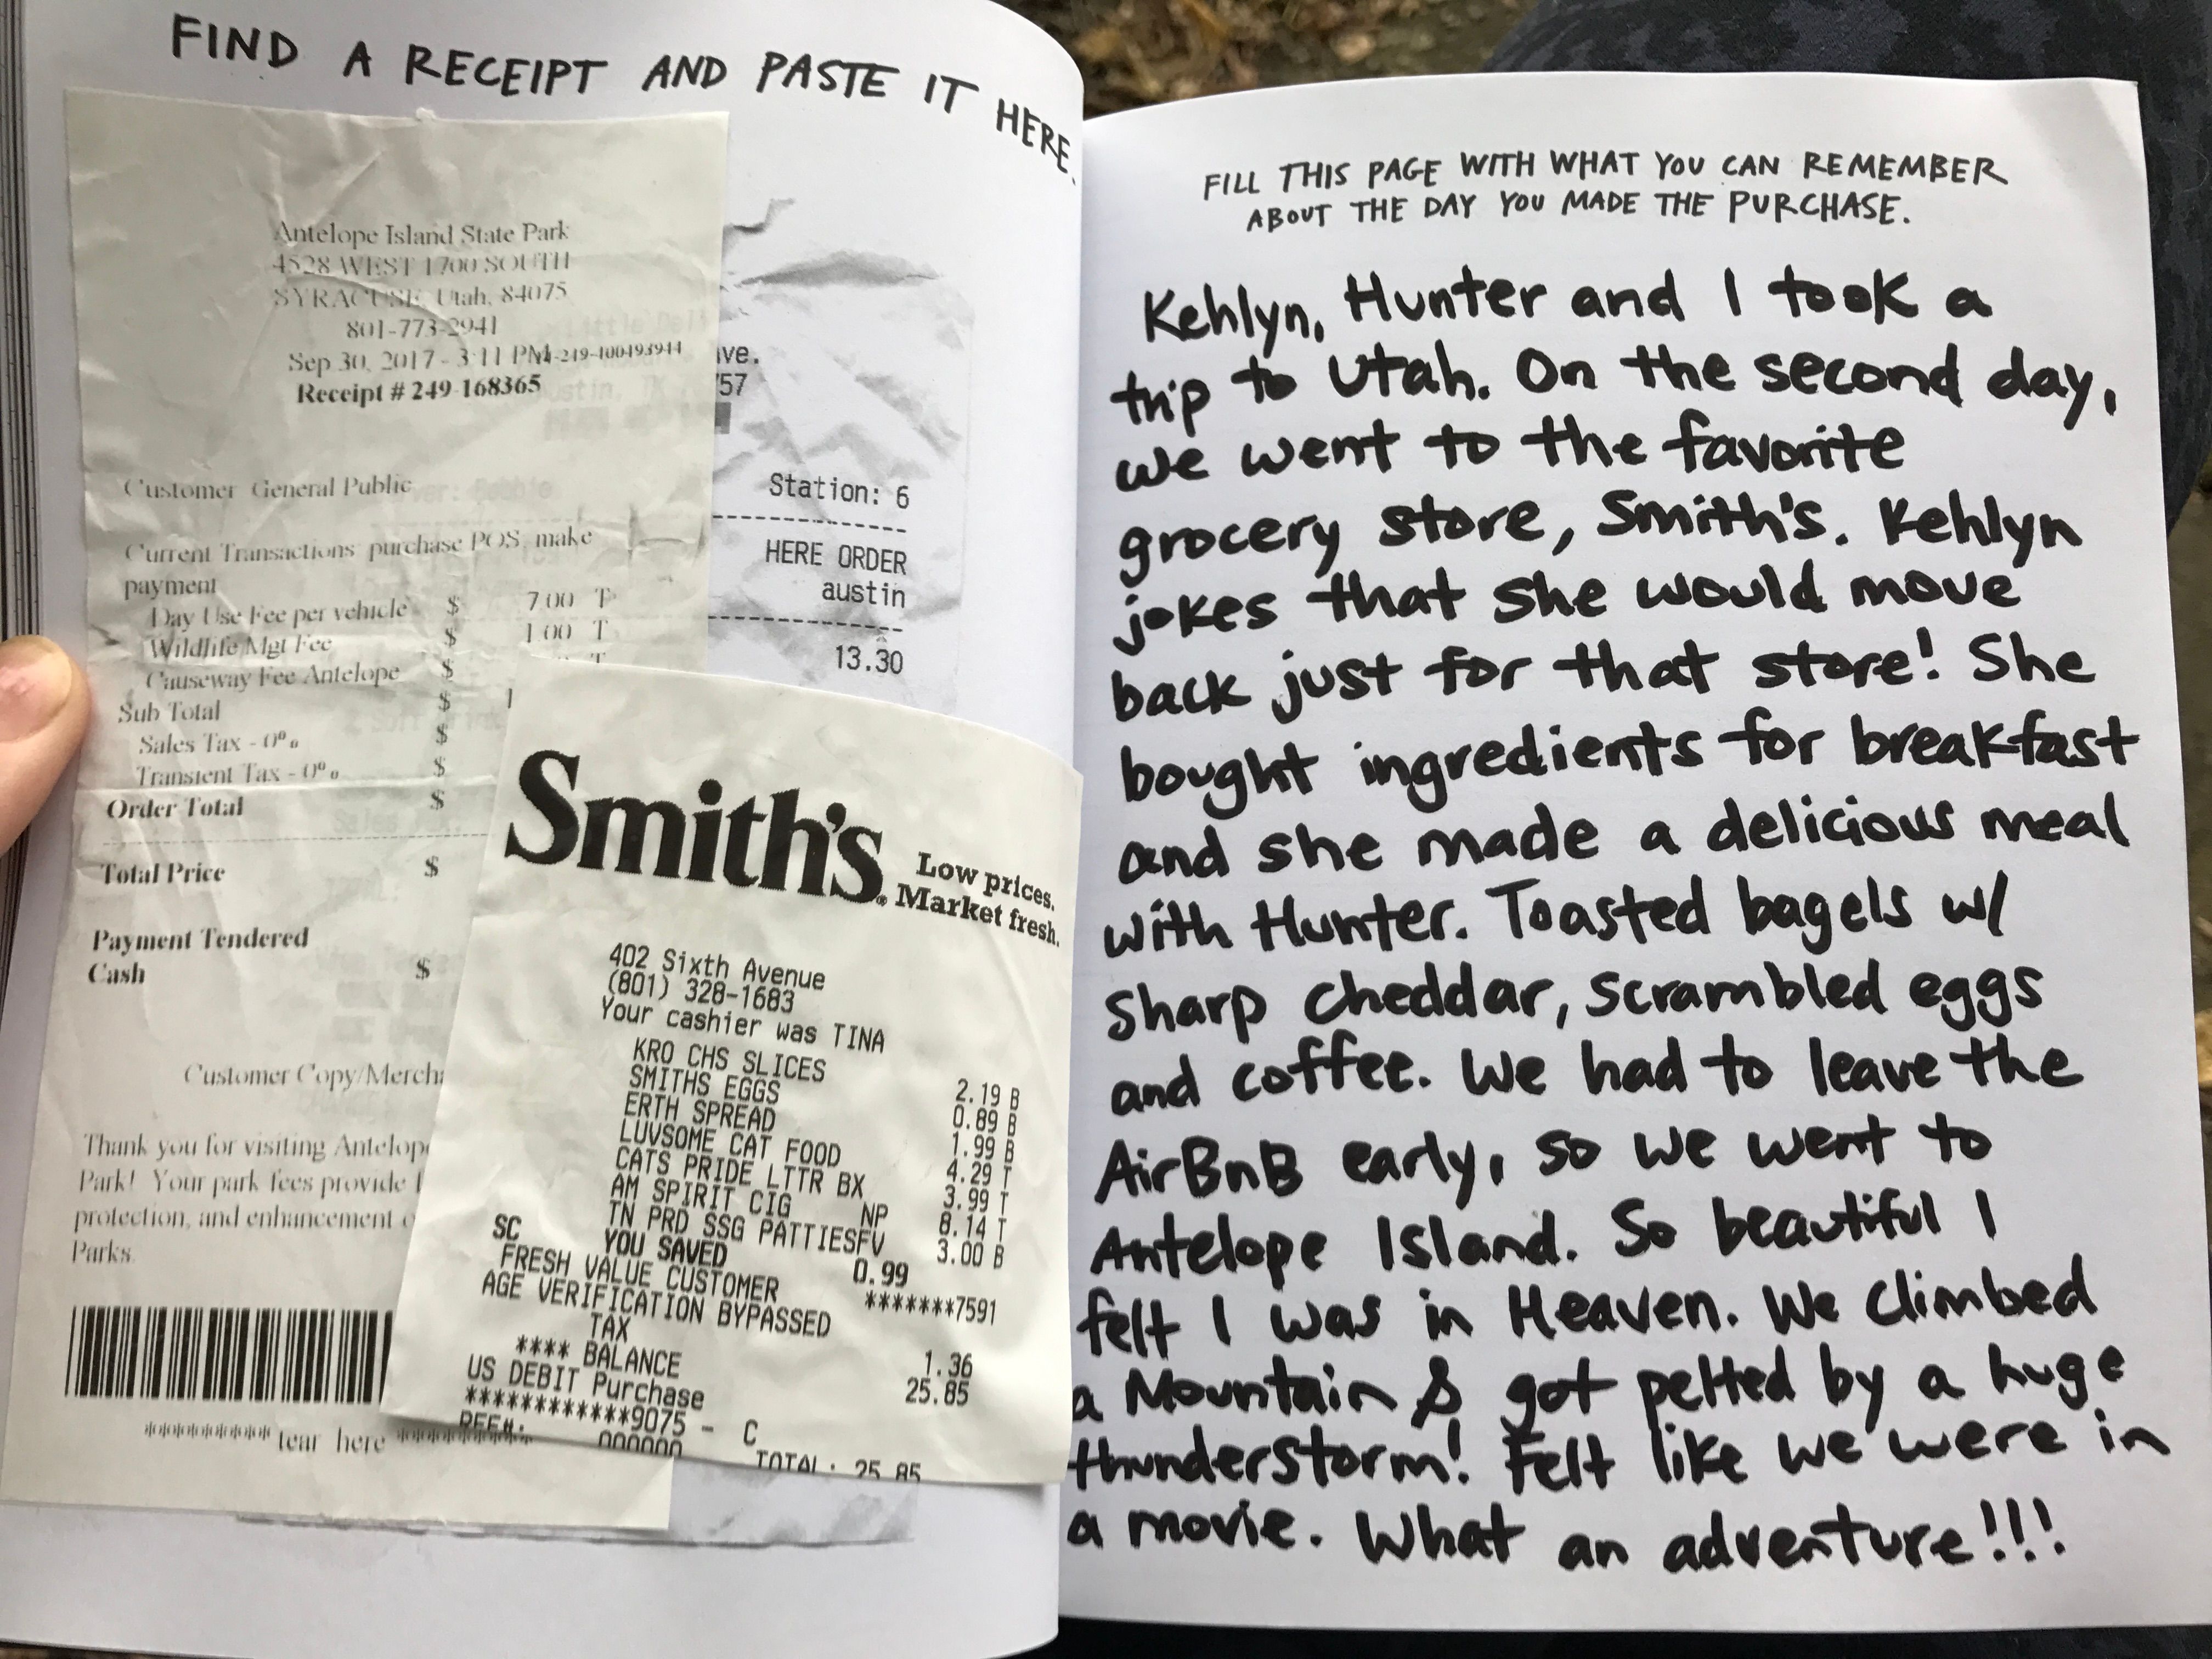 FIND A RECEIPT AND PASTE IT HERE.
Antelope Island State Park
4528 WEST 1700 SOUTH
SYRACUSE, Utah, 84075
801-773-2941
Sep 30, 2017 - 3:11 PM
Receipt # 249-168365
Customer General Public
Current Transactions: purchase POS, make
payment
Day Use Fee per vehicle $ 7.00 T
Wildlife Mgt Fee $ 1.00 T
Causeway Fee Antelope $ T
Sub Total $
Sales Tax - 0% $
Transient Tax - 0% $
Order Total $
Total Price $
Payment Tendered
Cash $
Customer Copy/Merch
Thank you for visiting Antelop
Park! Your park fees provide
protection, and enhancement o
Parks.
*********** tear here ************
ve.
57
Station: 6
HERE ORDER
austin
13.30
Smith's
Low prices.
Market fresh.
402 Sixth Avenue
(801) 328-1683
Your cashier was TINA
KRO CHS SLICES 2.19 B
SMITHS EGGS 0.89 B
ERTH SPREAD 1.99 B
LUVSOME CAT FOOD 4.29 T
CATS PRIDE LTTR BX 3.99 T
AM SPIRIT CIG NP 8.14 T
TN PRD SSG PATTIESFV 3.00 B
SC YOU SAVED 0.99
FRESH VALUE CUSTOMER *******7591
AGE VERIFICATION BYPASSED
TAX 1.36
**** BALANCE 25.85
US DEBIT Purchase
************9075 - C
REF#: 000000 TOTAL: 25.85
FILL THIS PAGE WITH WHAT YOU CAN REMEMBER
ABOUT THE DAY YOU MADE THE PURCHASE.
Kehlyn, Hunter and I took a
trip to Utah. On the second day,
we went to the favorite
grocery store, Smith's. Kehlyn
jokes that she would move
back just for that store! She
bought ingredients for breakfast
and she made a delicious meal
with Hunter. Toasted bagels w/
sharp cheddar, scrambled eggs
and coffee. We had to leave the
AirBnB early, so we went to
Antelope Island. So beautiful I
felt I was in Heaven. We climbed
a Mountain & got pelted by a huge
thunderstorm! Felt like we were in
a movie. What an adventure!!!